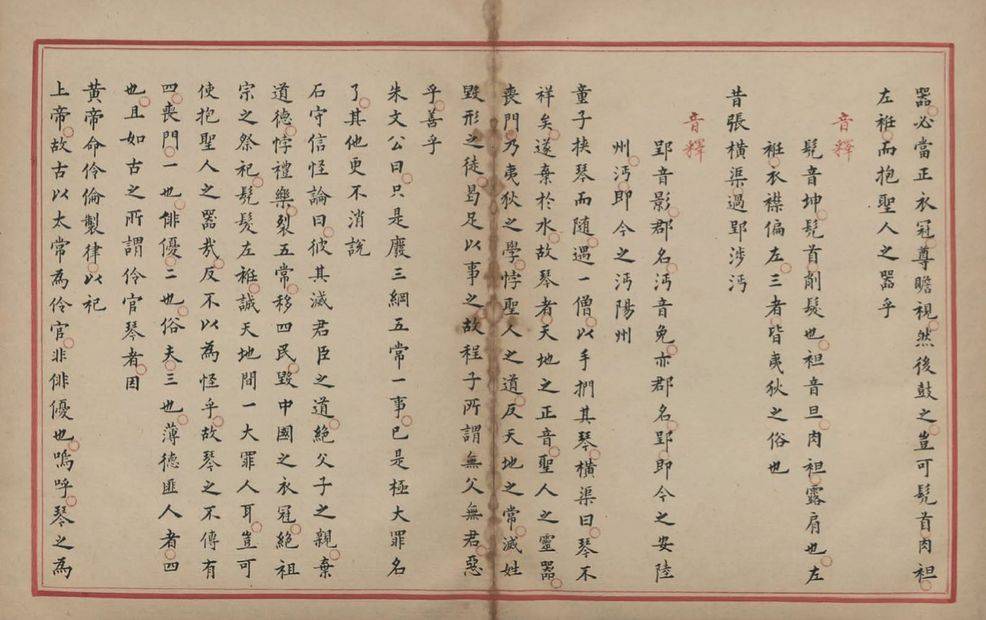 器必當正衣冠尊瞻視然後鼓之豈可髠首肉袒
左袵而抱聖人之器乎
音釋
髠音坤髠首削髮也袒音旦肉袒露肩也左
袵衣襟偏左三者皆夷狄之俗也
昔張橫渠過郢涉沔
音釋
郢音影郡名沔音免亦郡名郢即今之安陸
州沔即今之沔陽州
童子挾琴而隨遇一僧以手捫其琴橫渠曰琴不
祥矣遂棄於水故琴者天地之正音聖人之靈器
喪門乃夷狄之學悖聖人之道反天地之常滅姓
毀形之徒曷足以事之故程子所謂無父無君惡
乎善乎
朱文公曰只是廢三綱五常一事已是極大罪名
了其他更不消說
石守信怪論曰彼其滅君臣之道絶父子之親棄
道德悖禮樂裂五常移四民毀中國之衣冠絶祖
宗之祭祀髠髮左袵誠天地間一大罪人耳豈可
使抱聖人之器哉反不以為怪乎故琴之不傳有
四喪門一也俳優二也俗夫三也薄德匪人者四
也且如古之所謂伶官琴者因
黃帝命伶倫製律以祀
上帝故古以太常為伶官非俳優也嗚呼琴之為